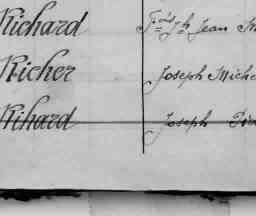 Richard Fçois Jh Jean
Richer Joseph Miche
Rihard Joseph